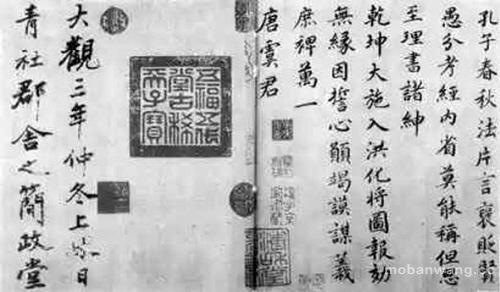 孔子春秋法片言褒貶賢
愚分考經內省莫能稱但思
至理書諸紳
乾坤大施入洪化將圖報効
無緣因誓心願竭謨謀義
庶裨萬一
唐虞君
五福五代
堂古稀
天子寶
大觀三年仲冬上日
青社郡舍之簡政堂
mobanwang.co